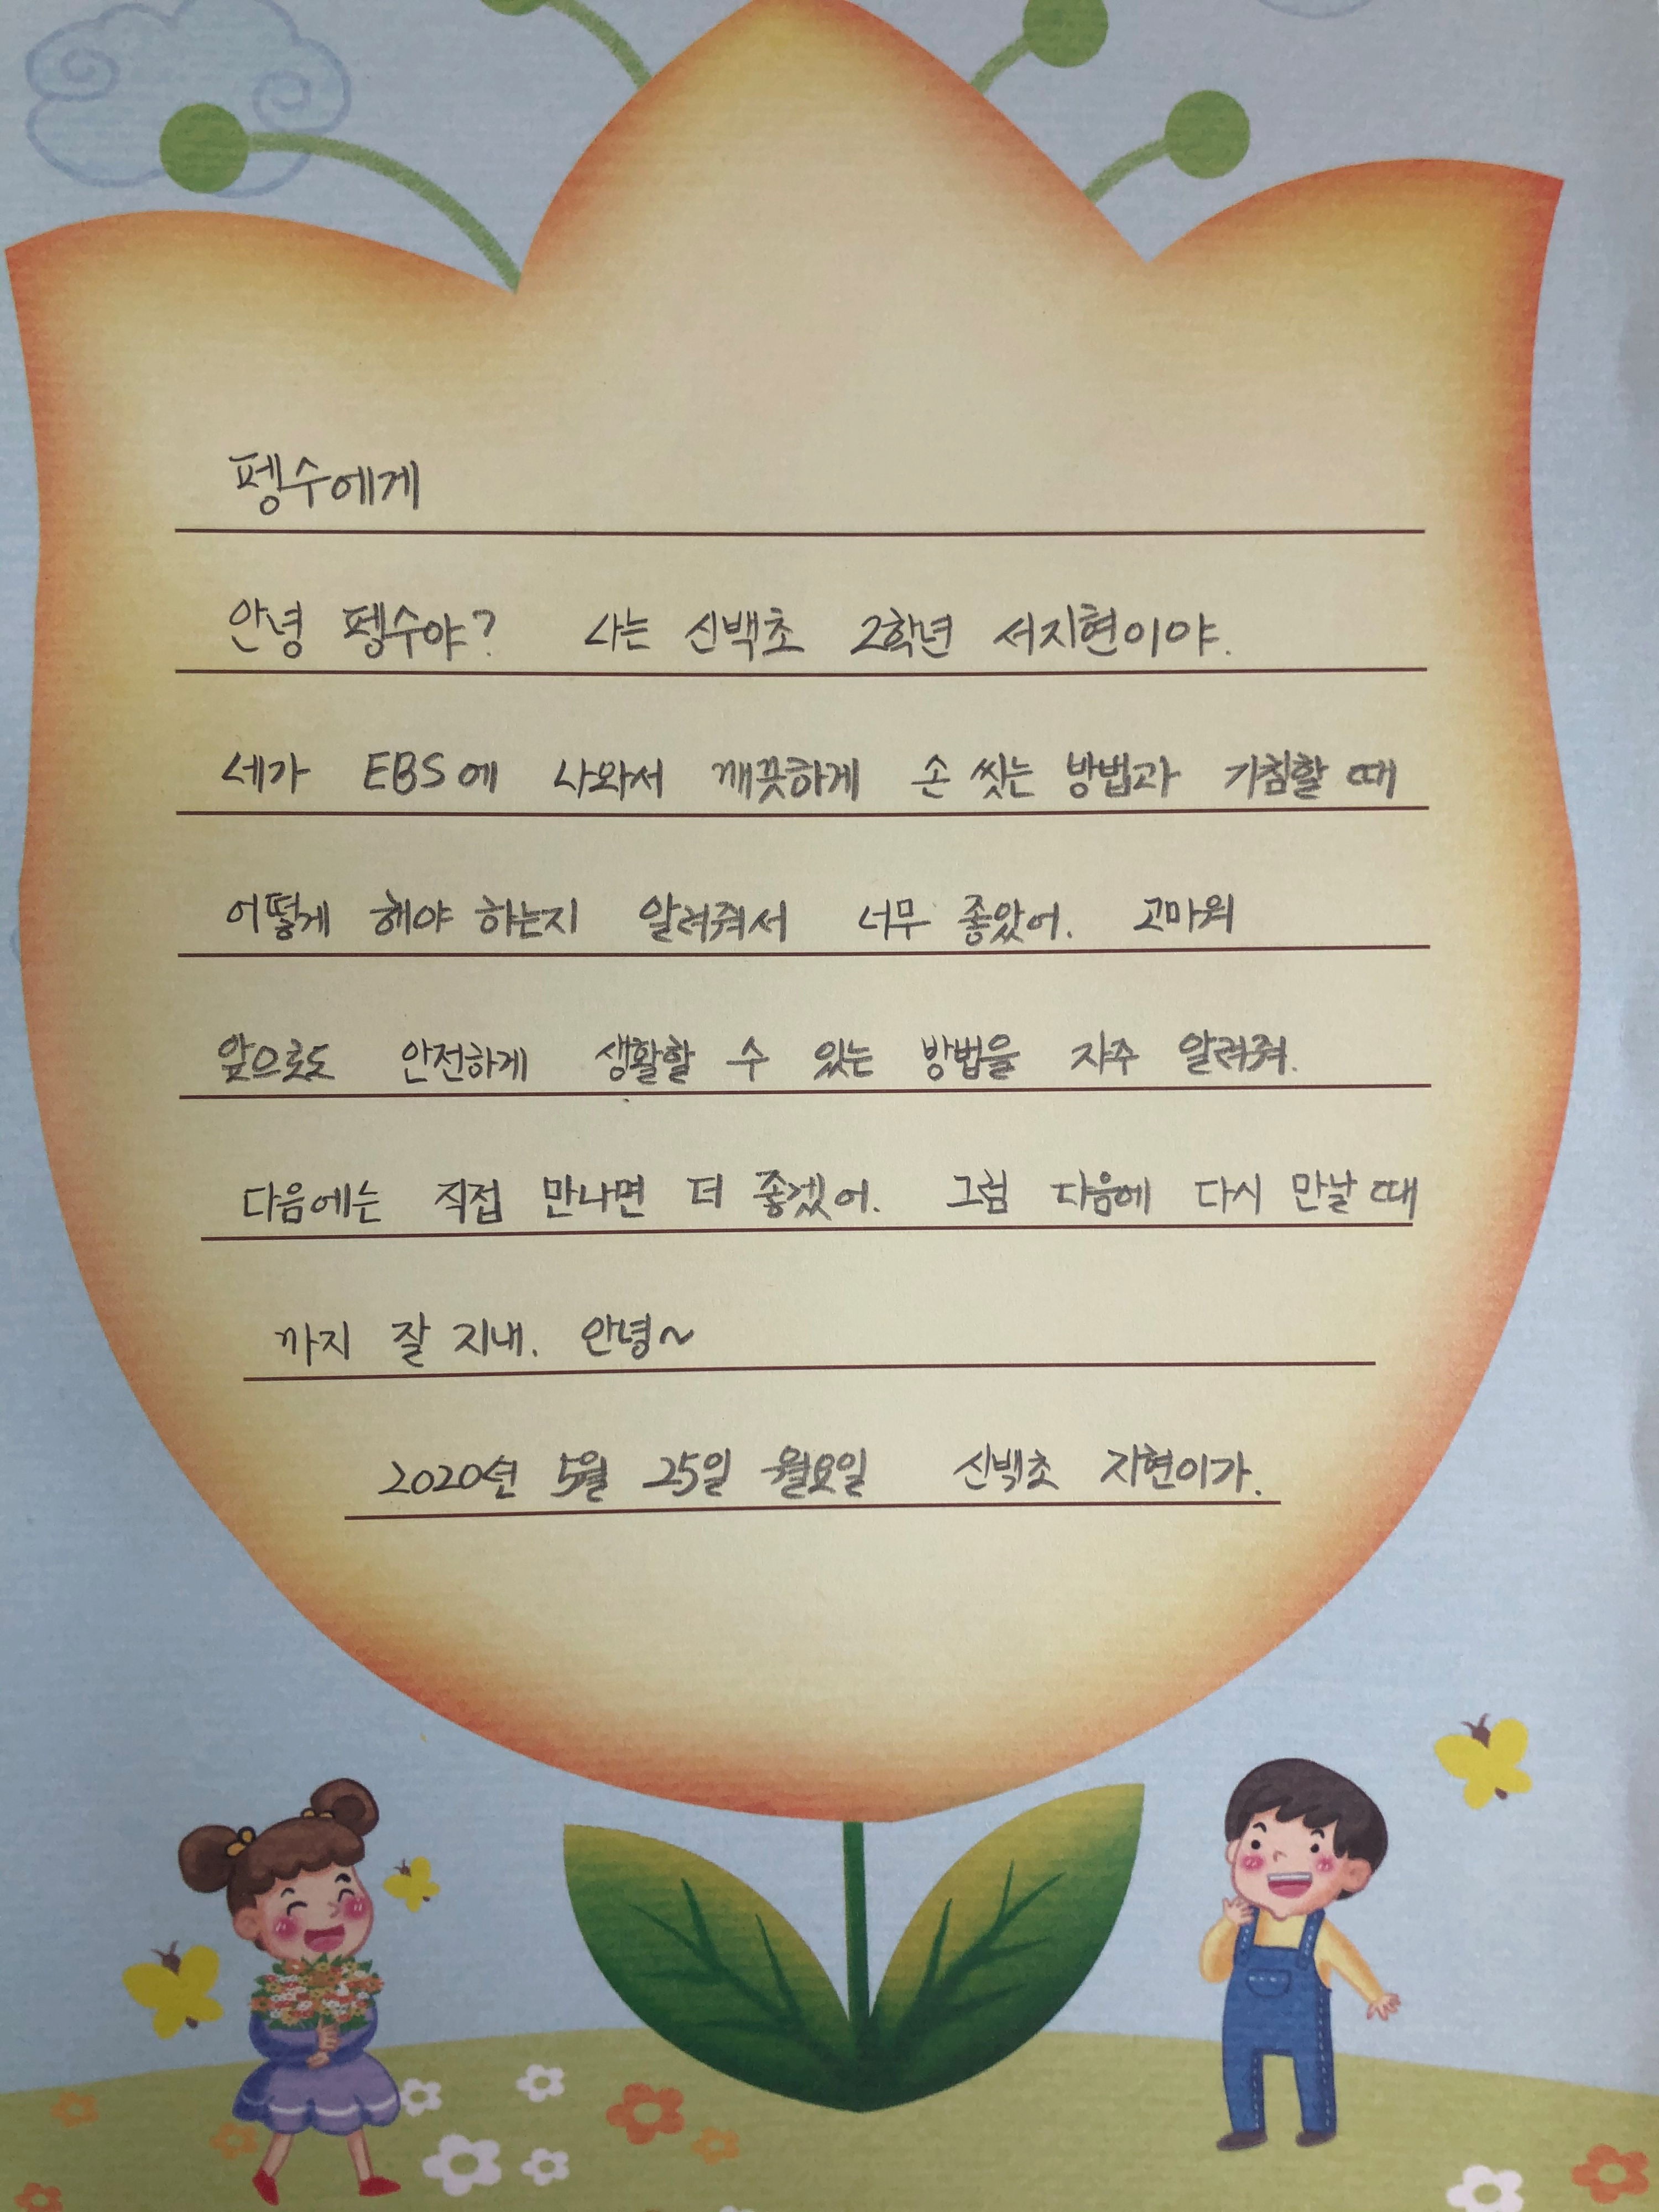 펭수에게
안녕 펭수야? 나는 신백초 2학년 서지현이야.
네가 EBS에 나와서 깨끗하게 손 씻는 방법과 기침할 때
어떻게 해야 하는지 알려줘서 너무 좋았어. 고마워
앞으로도 안전하게 생활할 수 있는 방법을 자주 알려줘.
다음에는 직접 만나면 더 좋겠어. 그럼 다음에 다시 만날 때
까지 잘 지내. 안녕~
2020년 5월 25일 월요일 신백초 지현이가.